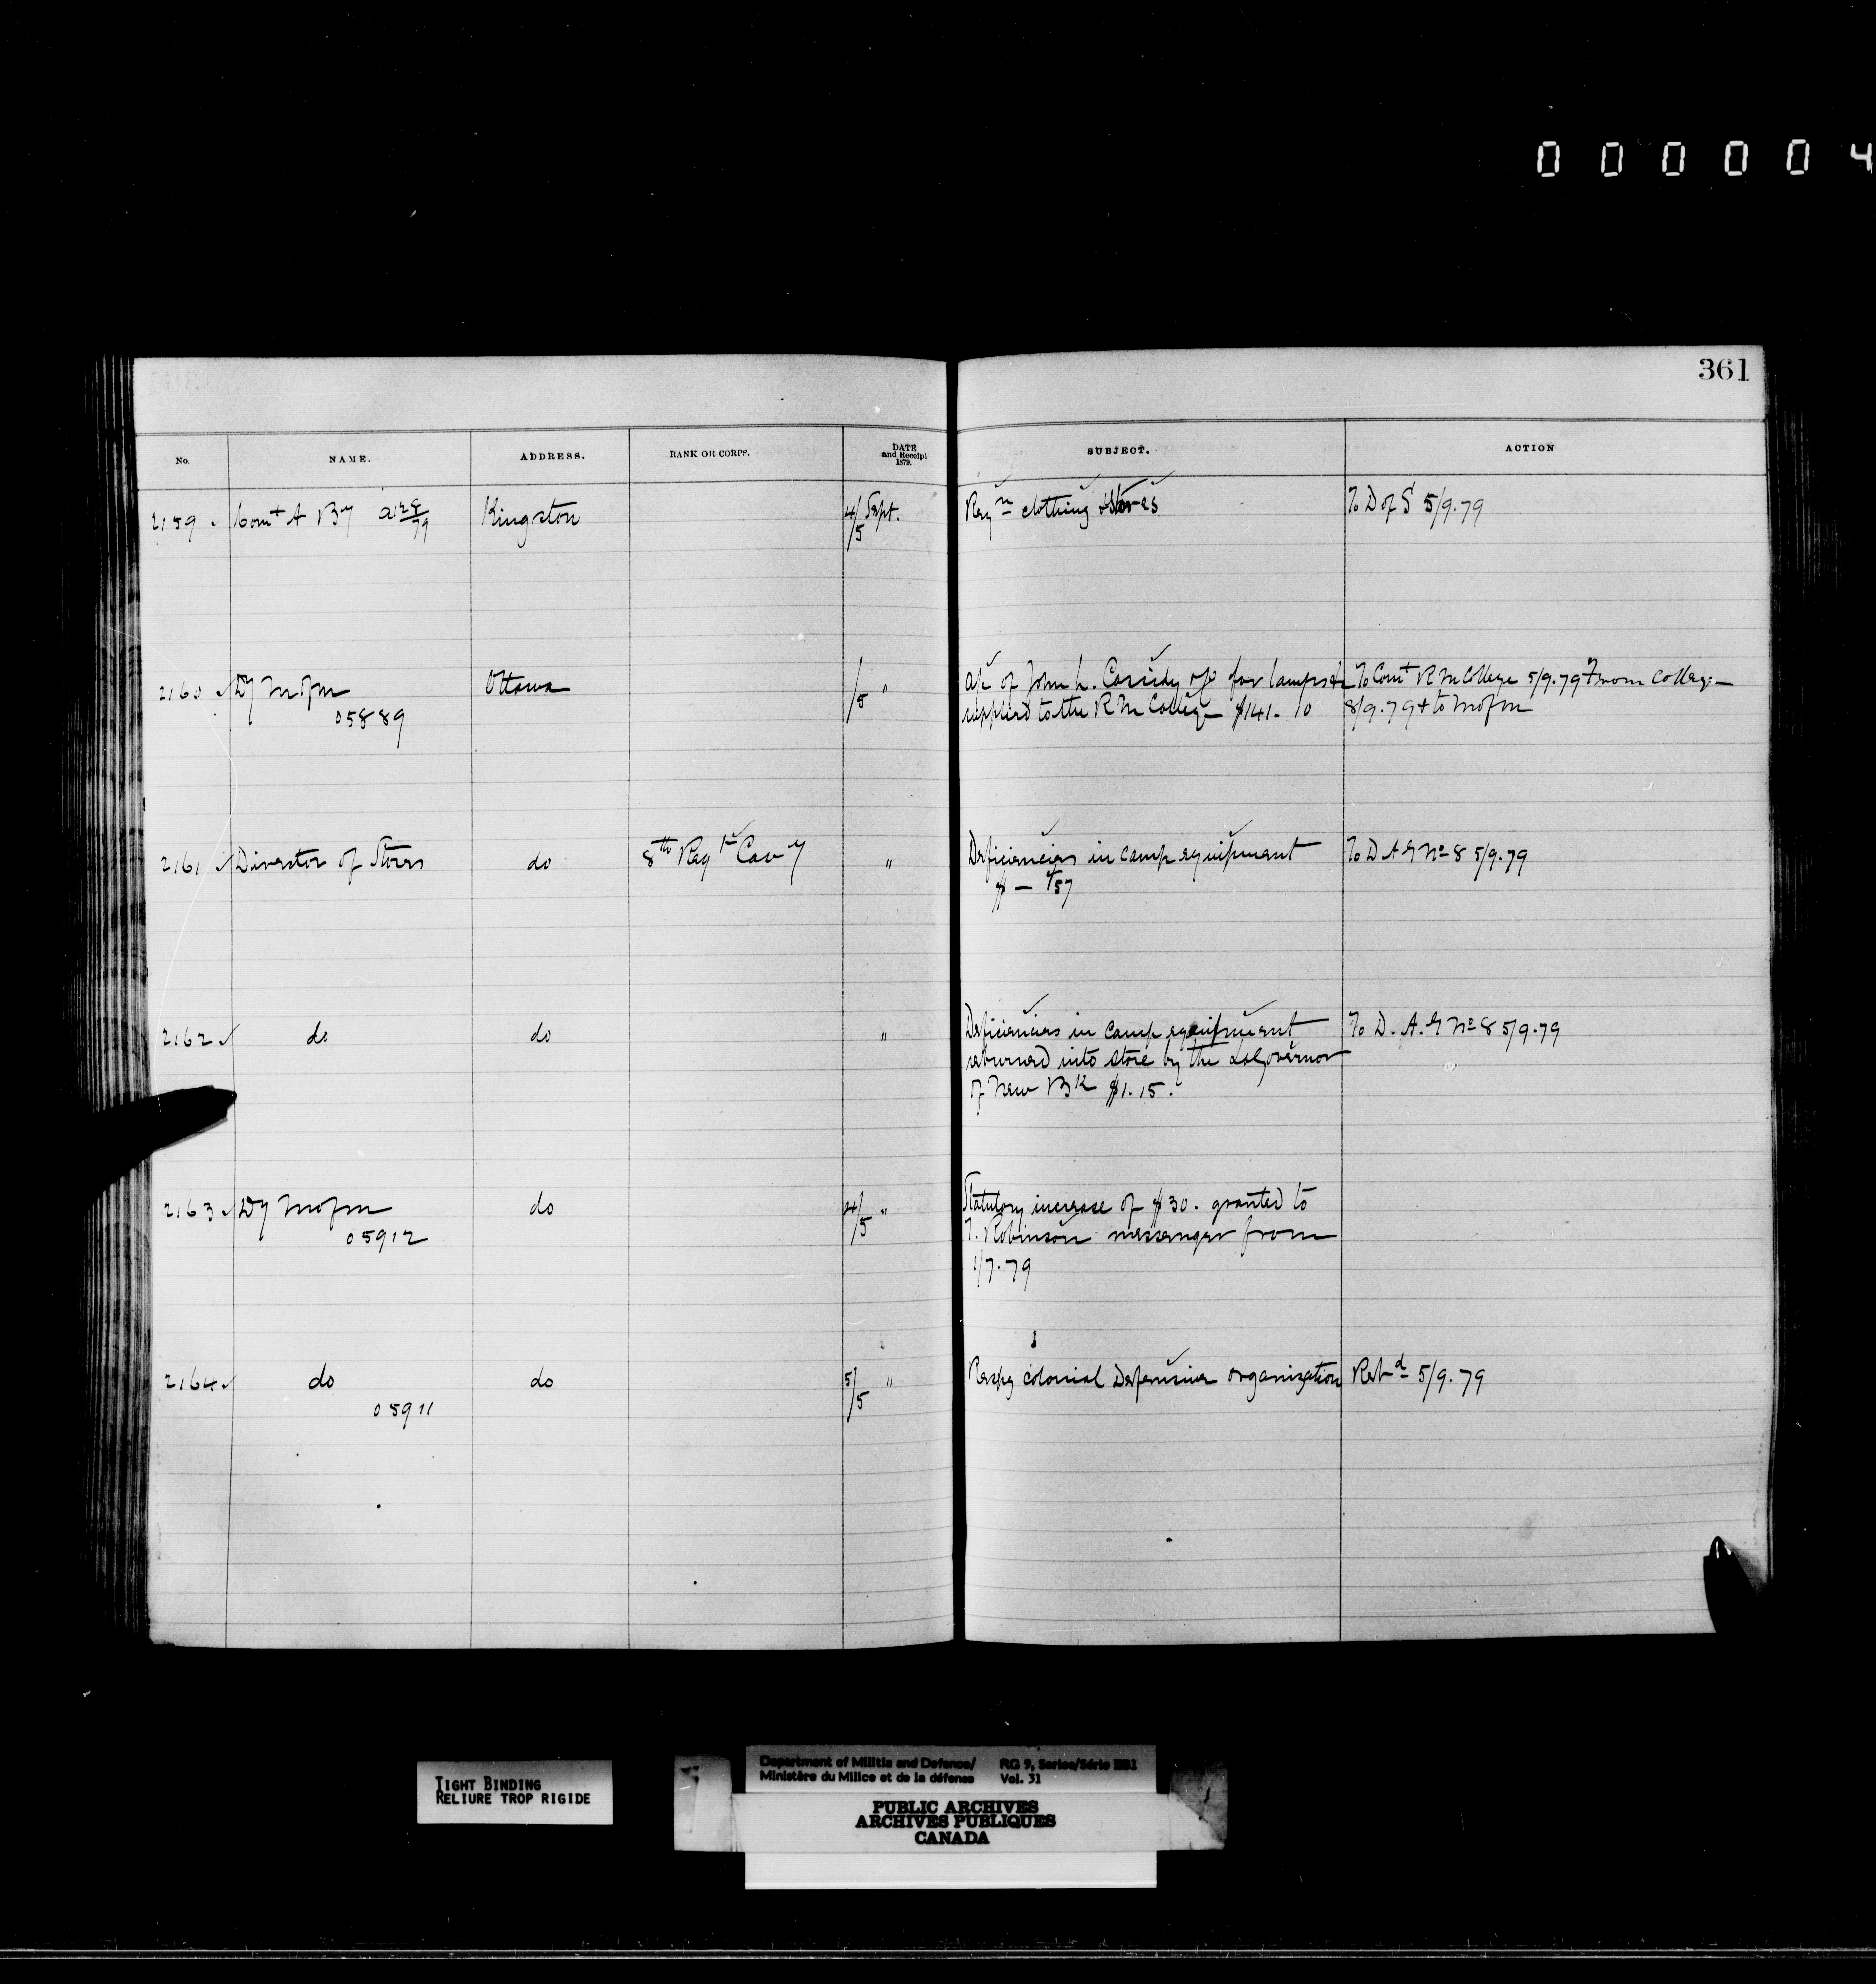 000004
361
No. NAME. ADDRESS. RANK OR CORPS. DATE and Receipt 1879. SUBJECT. ACTION
2159 Comt A By Kingston 4/5 Sept. Reqn clothing & Stores To D of S 5/9.79
2160 Dy M of M Ottawa /5 " a/c of John L. Cassidy for lamps & To Comt R M College 5/9.79 From College
05889 supplied to the R M College $141.10 8/9.79 & to M of M
2161 Director of Stores do 8th Regt Cavy " Deficiencies in camp equipment To D A G No 8 5/9.79
$ — 57
2162 do do " Deficiencies in camp equipment To D. A. G No 8 5/9.79
returned into store by the Lt Governor
of New Bk $1.15.
2163 Dy M of M do 4/5 " Statutory increase of $30. granted to
05912 T. Robinson messenger from
1/7.79
2164 do do 5/5 " Respg colonial Defensive organization Retd 5/9.79
05911
TIGHT BINDING
RELIURE TROP RIGIDE
Department of Militia and Defence/ RG 9, Series/Série IIB1
Ministère du Milice et de la défense Vol. 31
PUBLIC ARCHIVES
ARCHIVES PUBLIQUES
CANADA